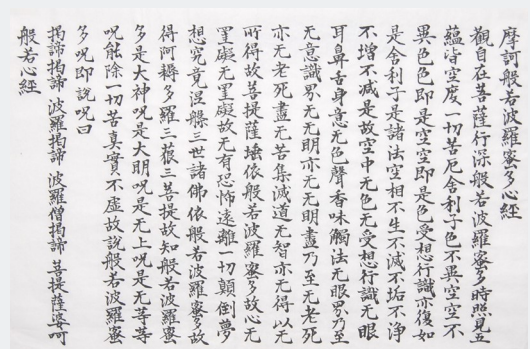 摩訶般若波羅蜜多心經
觀自在菩薩行深般若波羅蜜多時照見五
蘊皆空度一切苦厄舍利子色不異空空不
異色色即是空空即是色受想行識亦復如
是舍利子是諸法空相不生不滅不垢不淨
不增不減是故空中无色无受想行識无眼
耳鼻舌身意无色聲香味觸法无眼界乃至
无意識界无无明亦无无明盡乃至无老死
亦无老死盡无苦集滅道无智亦无得以无
所得故菩提薩埵依般若波羅蜜多故心无
罣礙无罣礙故无有恐怖遠離一切顛倒夢
想究竟涅槃三世諸佛依般若波羅蜜多故
得阿耨多羅三藐三菩提故知般若波羅蜜
多是大神呪是大明呪是无上呪是无等等
呪能除一切苦真實不虛故說般若波羅蜜
多呪即說呪曰
揭諦揭諦 波羅揭諦 波羅僧揭諦 菩提薩婆呵
般若心經